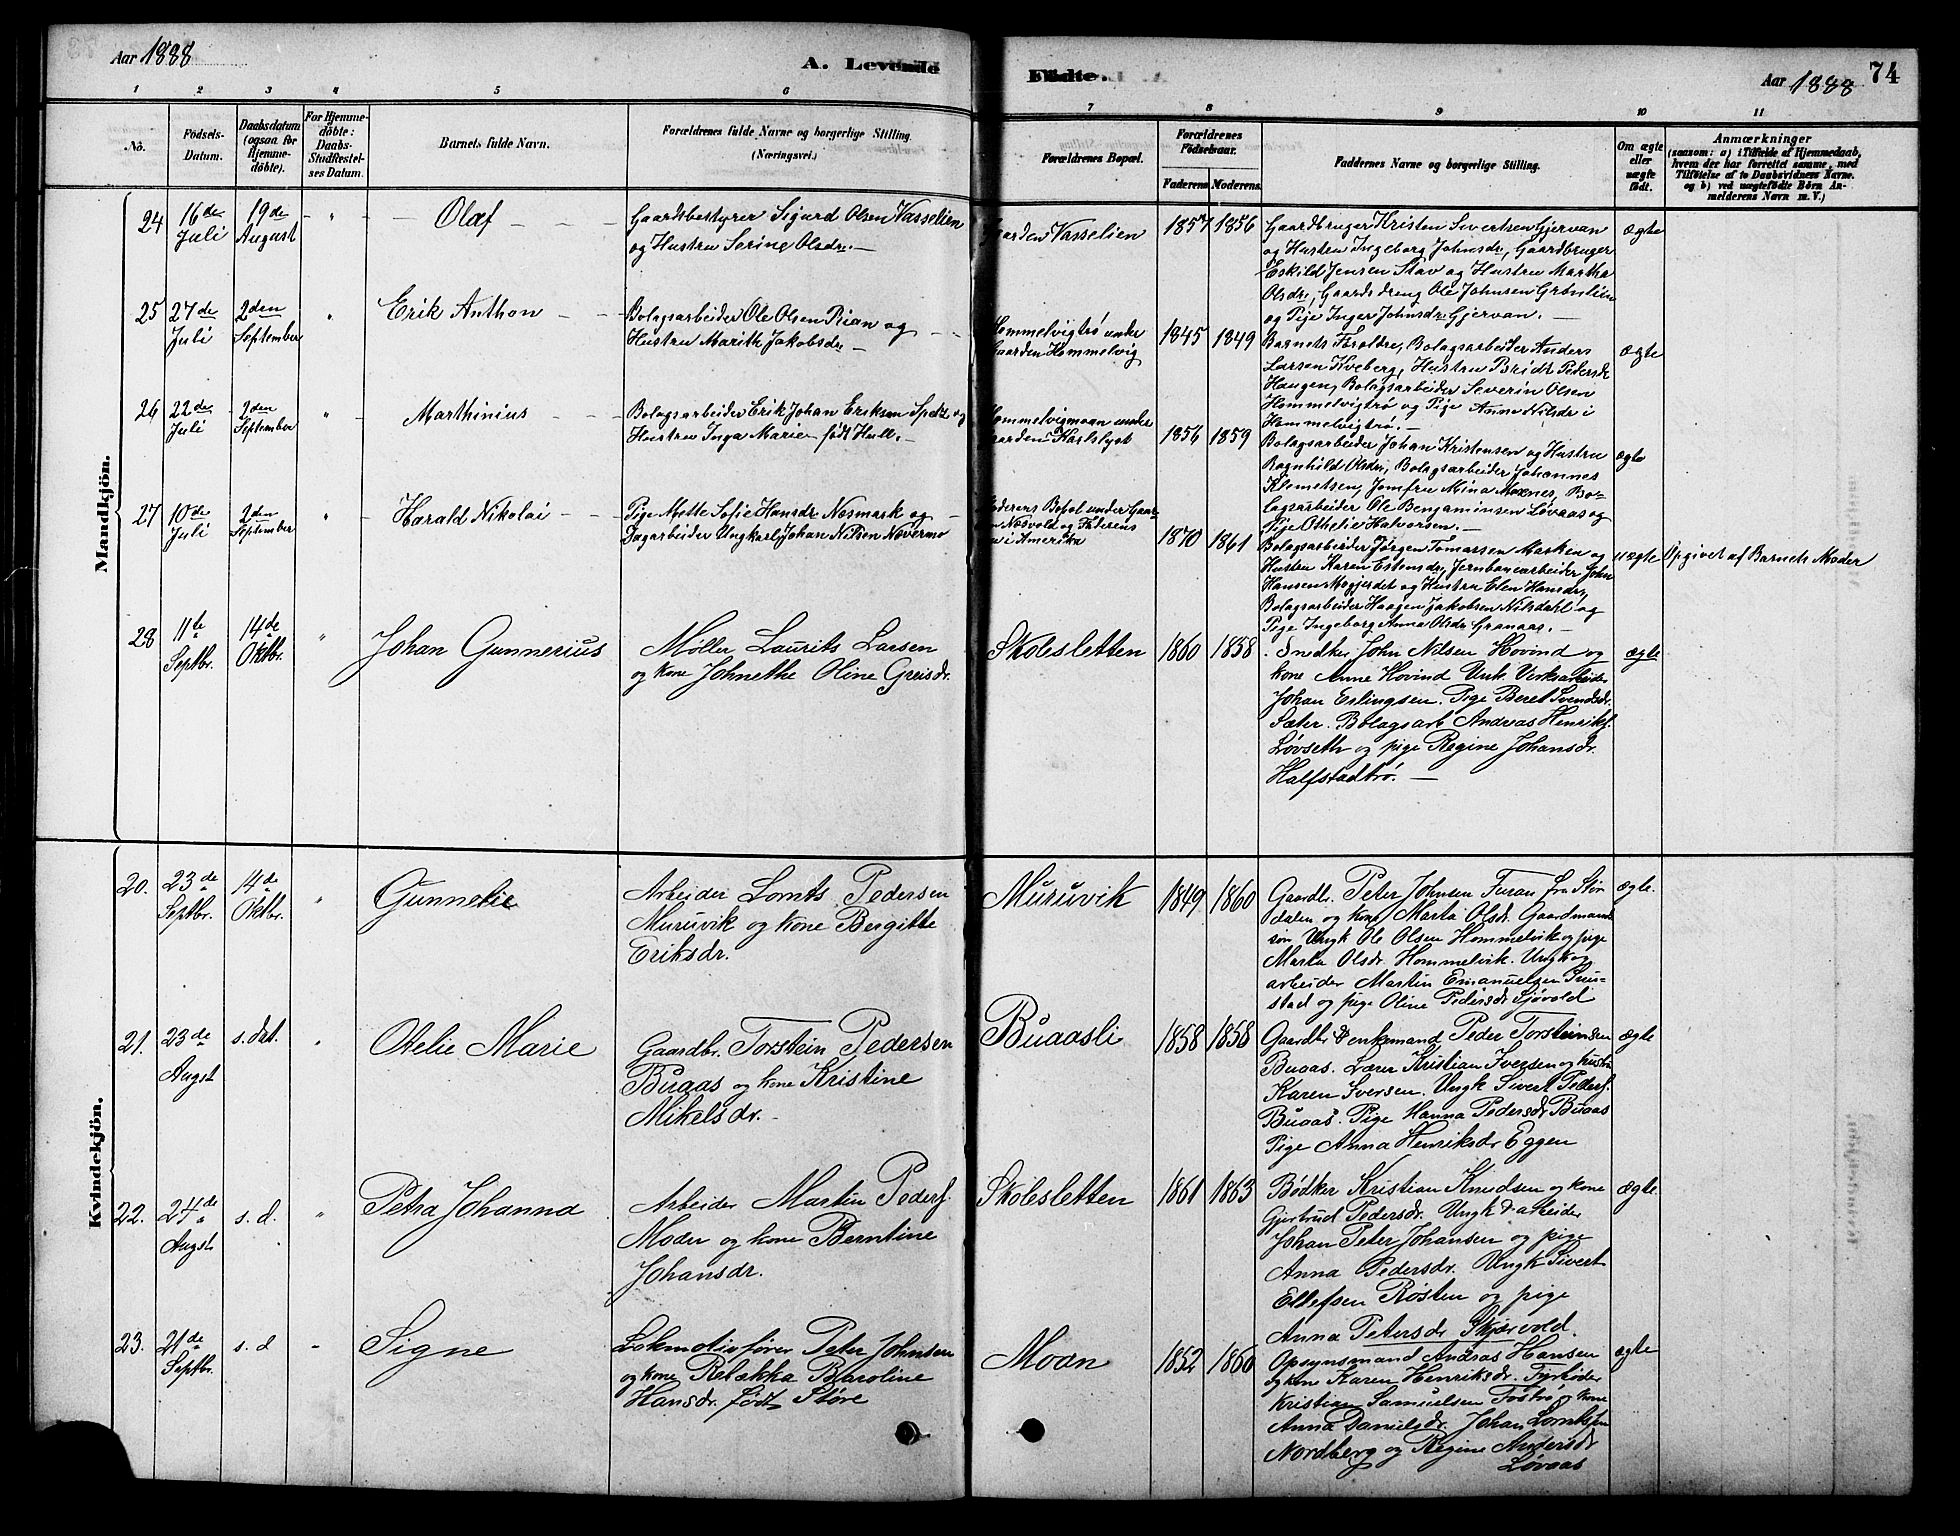 Aar 1888
A. Levende
1 2 3 4 5 6
No.
Fødsels-
Datum.
Daabsdatum
(ogsaa for
Hjemme-
døbte).
For Hjemme-
døbte:
Daabs-
Stadfæstel-
ses Datum.
Barnets fulde Navn.
Forældrenes fulde Navne og borgerlige Stilling.
(Næringsvei.)
Mandkjön.
24 16de Juli 19de August - " - - Olaf - - -
Gaardsbestyrer Sigurd Olsen Vasselien
og Hustru Serine Olsdr. -
25 27de Juli 2den September " Erik Anthon - -
Bolagsarbeider Ole Olsen Rian og - -
Hustru Marith Jakobsdr -
26 22de Juli 2den September " - Marthinius - - -
Bolagsarbeider Erik Johan Eriksen Spets og
Hustru Inga Marie født Hull. -
27 10de Juli 2den September " - Harald Nikolai - -
Pige Mette Sofie Hansdr Nosmark og -
Dagarbeider Ungkarl Johan Nilsen Nævermo
28 11te Septbr. 14de Oktbr. " Johan Gunnerius
Møller Laurits Larsen
og kone Johnethe Oline Greisdr.
Kvindekjön.
20. 23de Septbr. 14de Oktbr. " Gunnelie
Arbeider Lornts Pedersen
Muruvik og kone Bergitte
Eriksdr.
21. 23de Augst s. dat. " Otelie Marie
Gaardbr. Torstein Pedersen
Buaas og kone Kristine
Mikelsdr. -
22. 24de Augst s. d. " Petra Johanna
Arbeider Martin Peders.
Moder og kone Berntine
Johansdr.
23. 21de Septbr. s. d " Signe
Lokmotivfører Peter Johnsen
og kone Rebække Baroline
Hansdr. født Støre
Fødte.
Aar 1888 74
7 8 9 10 11
Forældrenes Bopæl.
Forældrenes
Fødselsaar.
Faderens. Moderens.
Faddernes Navne og borgerlige Stilling.
Om ægte
eller
uægte
født.
Anmærkninger
(saasom: a) i Tilfælde af Hjemmedaab,
hvem der har forrettet samme, med
Tilføielse af to Daabsvidners Navne.
og b) ved uægtefødte Börn An-
melderens Navn m. V.)
Gaarden Vasselien 1857 1856
Gaardbruger Kristen Sivertsen Gjervan
og Hustru Ingeborg Johnsdr, Gaardbruger
Eskild Jensen Stav og Hustru Martha
Olsdr, Gaardsdreng Ole Johnsen Grønlien
og Pige Inger Johnsdr Gjervan. -
ægte
Hommelvigtrø under
Gaarden Hommelvig 1845 1849
Barnets Foroldre, Bolagsarbeider Anders
Larsen Kveberg, Hustru Bridt Pedersdr
Haugen, Bolagsarbeider Severin Olsen
Hommelvigtrø og Pige Anne Nilsdr i
Hommelvigtrø. -
ægte
Hommelvigmoan under
Gaarden Karlslyst 1856 1859
Bolagsarbeider Johan Kristensen og Hustru
Ragnhild Olsdr, Bolagsarbeider Johannes
Klemetsen, Jomfru Mina Moxnes, Bo-
lagsarbeider Ole Benjaminsen Løvaas og
Pige Othelie Halvorsen. -
ægte
Moderens Bopæl under Gaar-
den Næsvold og Faderens
i Amerika 1870 1861
Bolagsarbeider Jørgen Tomassen Marken og
Hustru Karen Estensdr, Jernbanearbeider John
Hansen Mogjerdet og Hustru Elen Hansdr,
Bolagsarbeider Haagen Jakobsen Nilsdahl og
Pige Ingeborg Anna Olsdr Granaas. -
uægte Opgivet af Barnets Moder
Skolesletten 1860 1858
Snedker John Nilsen Hovind og
kone Anne Hovind Unk. Verksarbeider
Johan Erlingsen. Pige Beret Svendsdr.
Sæter. Bolagsarb Andreas Henriks.
Løvseth og pige Regine Johansdr.
Halfstadtrø. -
ægte
Muruvik 1849 1860
Gaardbr. Peter Johnsen Furan fra Stør
dalen og kone Marta Olsdr. Gaardmand
søn Ungk Ole Olsen Hommelvik og pige
Marta Olsdr. Hommelvik. Ungk og
arbeider Martin Emanuelsen
stad og pige Oline Pedersdr Sjøvold
ægte.
Buaasli 1858 1858
Gaardbr Enkemand Peder Torsteinsen
Buaas. Lærer Kristian Iversen og Hustru
Karen Iversen. Ungk Sivert Peders.
Buaas. Pige Hanna Pedersdr Buaas
Pige Anna Henriksdr Eggen
ægte
Skolesletten 1861 1863
Bødker Kristian Knudsen og kone
Gjertrud Pedersdr. Ungk & arbeider
Johan Peter Johansen og pige
Anna Pedersdr. Ungk Sivert
Ellefsen Røsten og pige
Anna Petersdr Skjærvold.
ægte.
Moan 1852 1860
Opsynsmand Andras Hansen
og kone Karen Henriksdr. Fyrbøder
Kristian Samuelsen Fostrø og kone
Anna Danielsdr. Johan Lorntsen
Nordberg og Regine Andersdr
Løvaas
ægte